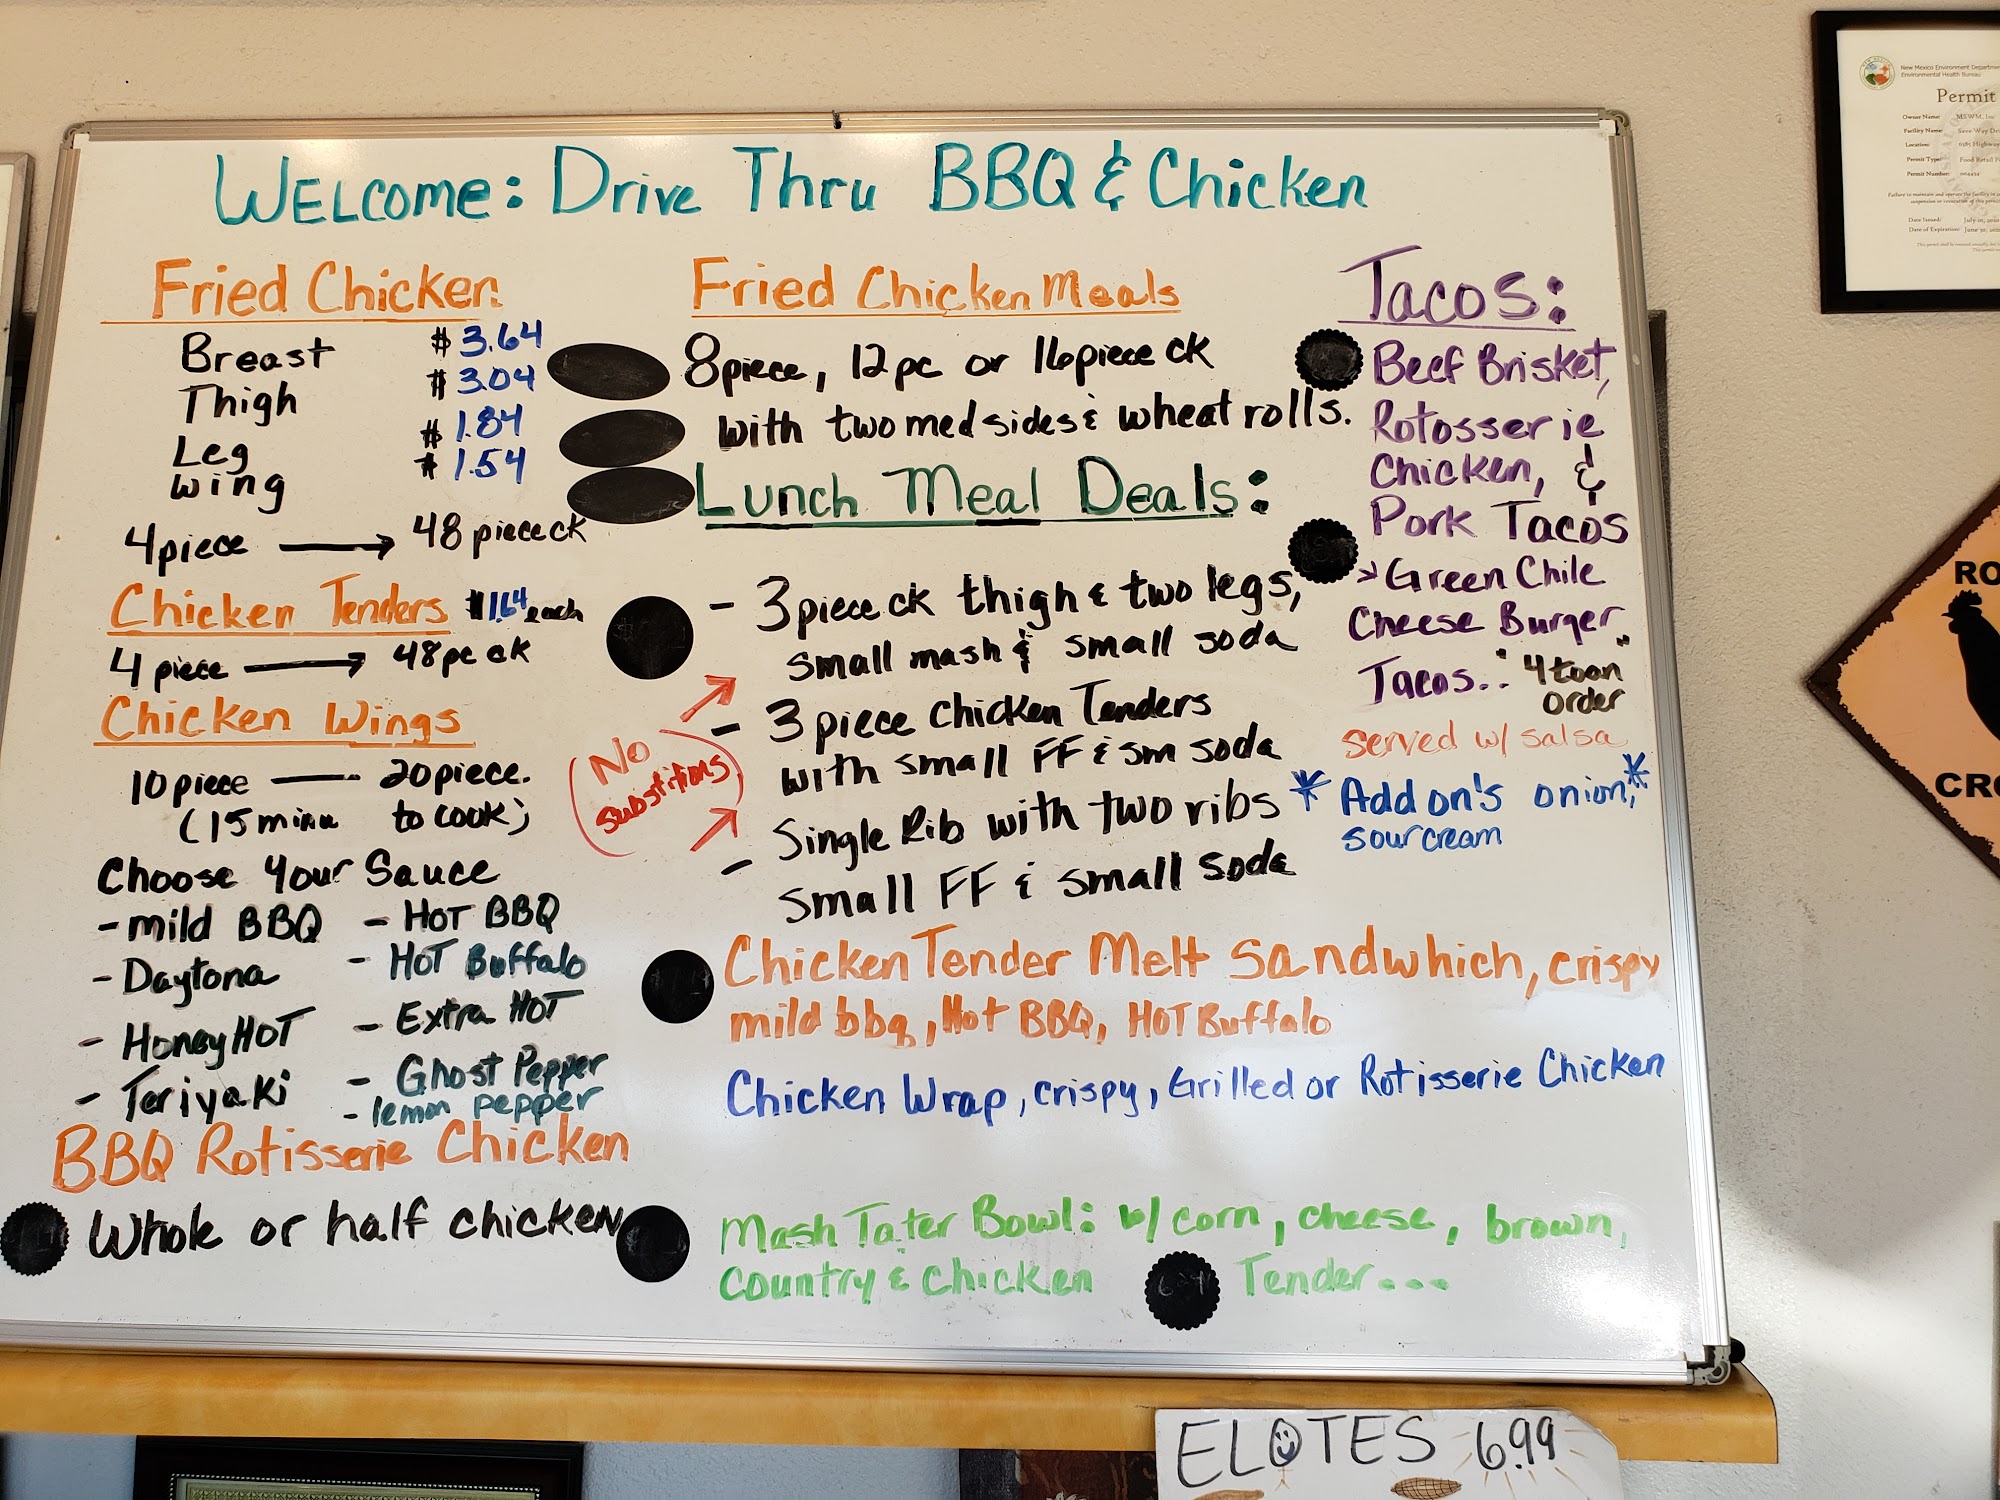 WELCOME: Drive Thru BBQ & Chicken
Fried Chicken
Breast $3.64
Thigh $3.04
Leg $1.84
wing $1.54
4piece → 48 piece ck
Chicken Tenders $1.64 each
4 piece → 48pc ck
Chicken Wings
10piece — 20piece.
(15 minu to cook)
Choose Your Sauce
- mild BBQ - HOT BBQ
- Daytona - HOT Buffalo
- Honey HOT - Extra HOT
- Teriyaki - Ghost Pepper
- lemon pepper
BBQ Rotisserie Chicken
Whole or half chicken
Fried Chicken Meals
8piece, 12pc or 16piece ck
with two med sides & wheat rolls.
Lunch Meal Deals:
- 3 piece ck thigh & two legs,
small mash & small soda
- 3 piece Chicken Tenders
with small FF & sm soda
- Single Rib with two ribs
small FF & small soda
No
substitions
Chicken Tender Melt Sandwhich, crispy
mild bbq, Hot BBQ, HOT Buffalo
Chicken Wrap, crispy, Grilled or Rotisserie Chicken
Mash Tater Bowl: w/ corn, cheese, brown,
country & chicken Tender...
Tacos:
Beef Brisket,
Rotosserie
Chicken, &
Pork Tacos
> Green Chile
Cheese Burger
Tacos.. "4 to an"
order
served w/ salsa
* Add on's onion, *
sour cream
ELOTES 6.99
New Mexico Environment Departm
Environmental Health Bureau
Permit
Owner Name: MSWM, Inc
Facility Name: Save Way Dri
Location: 6385 Highway
Permit Type: Food Retail F
Permit Number:
Date Issued: July 01,
Date of Expiration: June 30,
RO
CRO